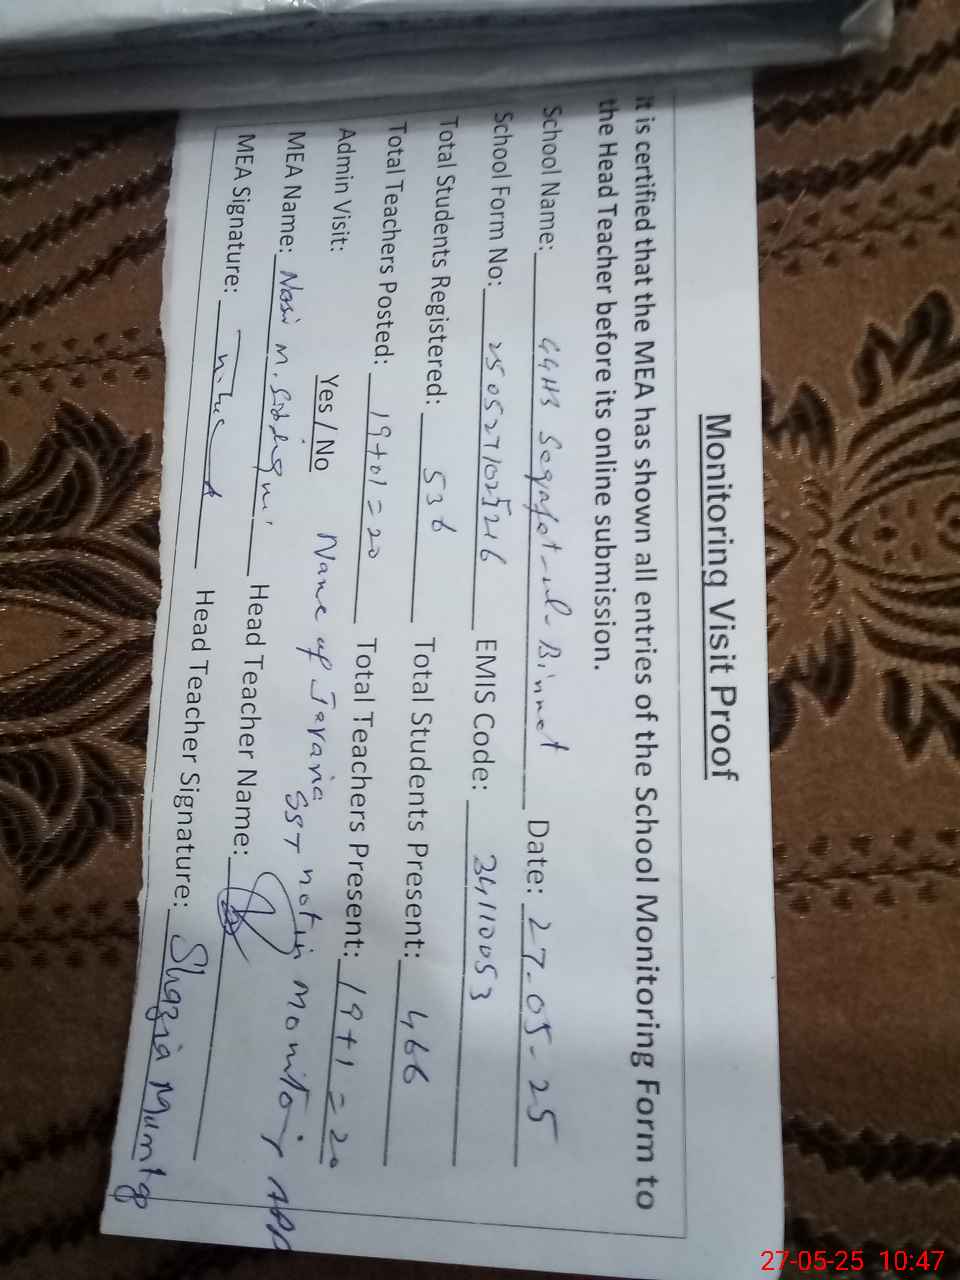 Monitoring Visit Proof
it is certified that the MEA has shown all entries of the School Monitoring Form to
the Head Teacher before its online submission.
School Name: GGHS Seqafat-ul-Binnat Date: 27-05-25
School Form No: EMIS Code: 34110053
Total Students Registered: 536 Total Students Present: 466
Total Teachers Posted: 19+01=20 Total Teachers Present: 19+1=20
Admin Visit: Yes / No Name of Javaria SST not in Monitoring App
MEA Name: Nasir M. Siddiqui Head Teacher Name:
MEA Signature: Head Teacher Signature: Shazia Mumtaz
27-05-25 10:47